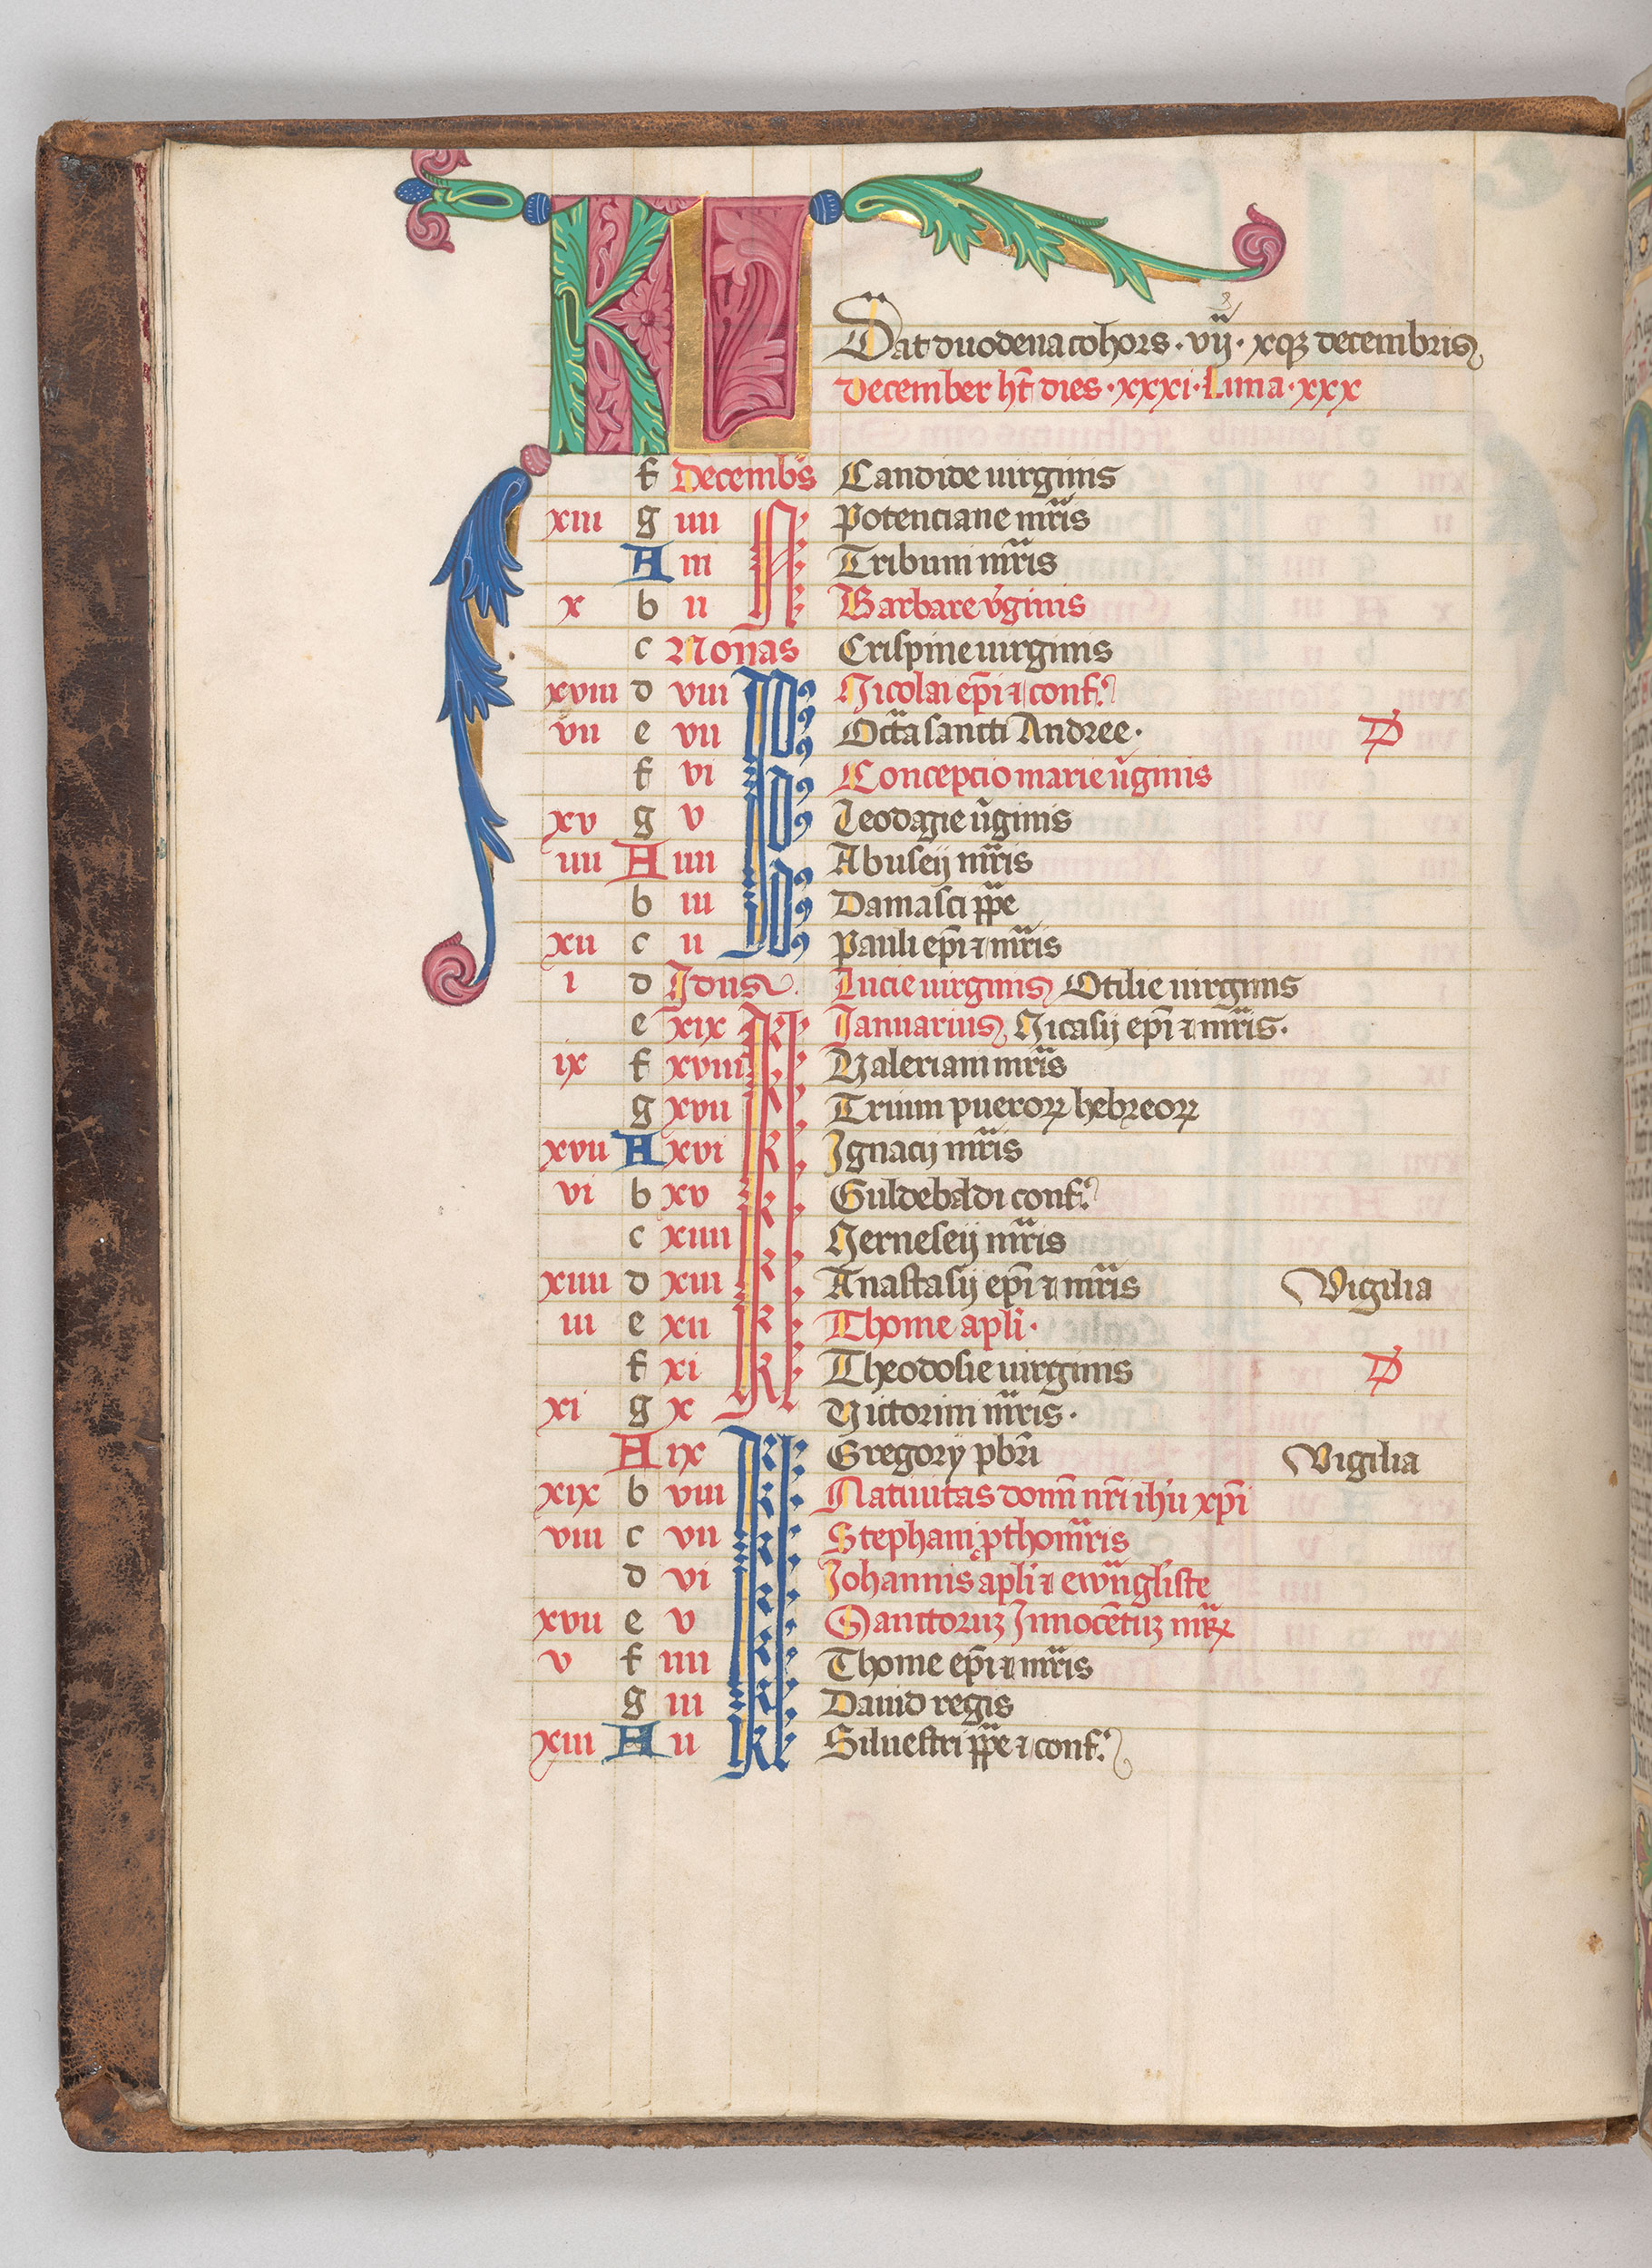 KL
Dat duodena cohors · vij · xqꝫ decembris
December ht̄ dies · xxxi · Luna · xxx
f Decemb's Candide uirginis
xiii g iiii N Potenciane mr̄is
A iii Tribuni mr̄is
x b ii Barbare v̄ginis
c Nonas Crispine uirginis
xviii d viii Idꝰ Nicolai ep̄i ⁊ conf.
vii e vii Idꝰ Oct̄a sancti Andree · D
f vi Idꝰ Concepcio marie ūginis
xv g v Idꝰ Leodagie ūginis
iiii A iiii Idꝰ Abuseij mr̄is
b iii Idꝰ Damasci pp̄e
xii c ii Idꝰ Pauli ep̄i ⁊ mr̄is
i d Idus Lucie uirginis Otilie uirginis
e xix kł Januarius Nicasij ep̄i ⁊ mr̄is ·
ix f xviii kł Valeriani mr̄is
g xvii kł Trium pueroꝝ hebreoꝝ
xvii A xvi kł Ignacij mr̄is
vi b xv kł Guldebaldi conf.
c xiiii kł Nerneseij mr̄is
xiiii d xiii kł Anastasij ep̄i ⁊ mr̄is Vigilia
iii e xii kł Thome apli ·
f xi kł Theodosie uirginis D
xi g x kł Victorini mr̄is ·
A ix kł Gregorij pbr̄i Vigilia
xix b viii kł Natiuitas domī nr̄i ihū xp̄i
viii c vii kł Stephani pthomr̄is
d vi kł Johannis apli ⁊ ewāgliste
xvii e v kł Sanctoruꝫ Innocētuꝫ mr̄ꝝ
v f iiii kł Thome ep̄i ⁊ mr̄is
g iii kł Dauid regis
xiii A ii kł Siluestri pp̄e ⁊ conf.